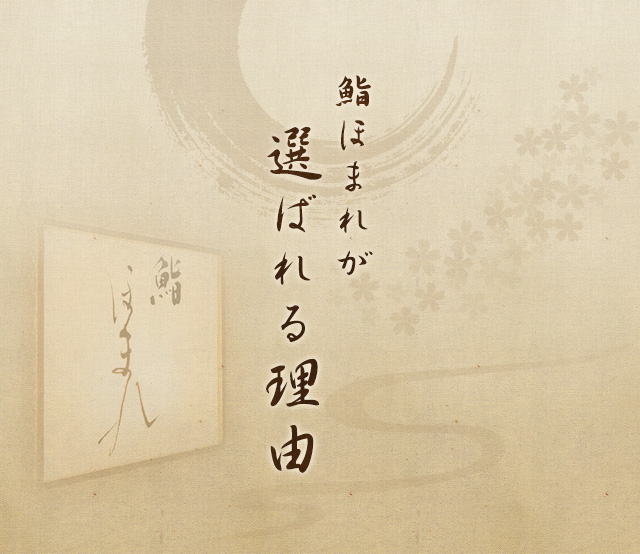 鮨ほまれが
選ばれる理由
鮨
ほまれ